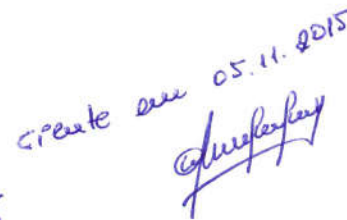 ciente em 05.11.2015